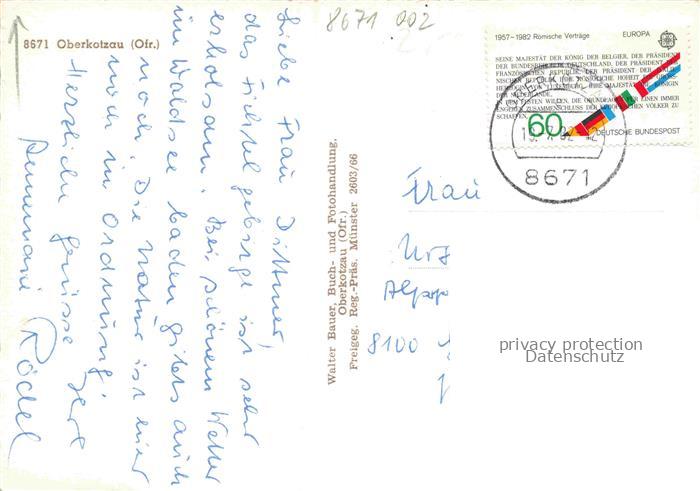 8671 Oberkotzau (Ofr.)
8671 002
Liebe Frau Dittner,
das Fichtelgebirge ist sehr
erholsam. Bei schönem Wetter
im Waldsee baden gibts auch
noch. Die Natur ist hier
noch in Ordnung.
Herzliche Grüsse Ihre
Annemarie Rödel
Walter Bauer, Buch- und Fotohandlung,
Oberkotzau (Ofr.)
Freigeg. Reg.-Präs. Münster 2603/66
1957–1982 Römische Verträge EUROPA
SEINE MAJESTÄT DER KÖNIG DER BELGIER, DER PRÄSIDENT
DER BUNDESREPUBLIK DEUTSCHLAND, DER PRÄSIDENT DER
FRANZÖSISCHEN REPUBLIK, DER PRÄSIDENT DER
REPUBLIK, IHRE KÖNIGLICHE HOHEIT
HERZOGIN VON LUXEMBURG, IHRE MAJESTÄT KÖNIGIN
DER NIEDERLANDE,
FESTEN WILLEN, DIE GRUNDLAGEN EINEN IMMER
ENGEREN ZUSAMMENSCHLUSS DER EUROPÄISCHEN VÖLKER ZU
SCHAFFEN
60 DEUTSCHE BUNDESPOST
8671
Frau
8100
privacy protection
Datenschutz